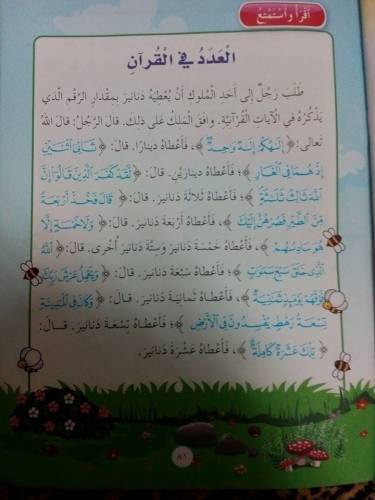 أَقْرَأُ وَأَسْتَمْتِعُ
الْعَدَدُ فِي الْقُرْآنِ
طَلَبَ رَجُلٌ إِلَى أَحَدِ الْمُلوكِ أَنْ يُعْطِيَهُ دَنانيرَ بِمِقْدارِ الرَّقْمِ الَّذي
يَذْكُرُهُ في الْآياتِ الْقُرْآنِيَّةِ. وافَقَ الْمَلِكُ عَلى ذلِكَ. قالَ الرَّجُلُ: قالَ اللهُ
تَعالى: ﴿إِلَٰهُكُمْ إِلَٰهٌ وَاحِدٌ﴾، فَأَعْطاهُ دينارًا. قالَ: ﴿ثَانِيَ اثْنَيْنِ
إِذْ هُمَا فِي الْغَارِ﴾؛ فَأَعْطاهُ دينارَيْنِ. قالَ: ﴿لَّقَدْ كَفَرَ الَّذِينَ قَالُوا إِنَّ
اللَّهَ ثَالِثُ ثَلَاثَةٍ﴾؛ فَأَعْطاهُ ثَلاثَةَ دَنانيرَ. قالَ: ﴿قَالَ فَخُذْ أَرْبَعَةً
مِّنَ الطَّيْرِ فَصُرْهُنَّ إِلَيْكَ﴾، فَأَعْطاهُ أَرْبَعَةَ دَنانيرَ. قالَ: ﴿وَلَا خَمْسَةٍ إِلَّا
هُوَ سَادِسُهُمْ﴾، فَأَعْطاهُ خَمْسَةَ دَنانيرَ وَسِتَّةَ دَنانيرَ أُخْرى. قالَ: ﴿اللَّهُ
الَّذِي خَلَقَ سَبْعَ سَمَاوَاتٍ﴾؛ فَأَعْطاهُ سَبْعَةَ دَنانيرَ. قالَ: ﴿وَيَحْمِلُ عَرْشَ رَبِّكَ
فَوْقَهُمْ يَوْمَئِذٍ ثَمَانِيَةٌ﴾، فَأَعْطاهُ ثَمانِيَةَ دَنانيرَ. قالَ: ﴿وَكَانَ فِي الْمَدِينَةِ
تِسْعَةُ رَهْطٍ يُفْسِدُونَ فِي الْأَرْضِ﴾؛ فَأَعْطاهُ تِسْعَةَ دَنانيرَ. قالَ:
﴿تِلْكَ عَشَرَةٌ كَامِلَةٌ﴾، فَأَعْطاهُ عَشَرَةَ دَنانيرَ.
٨١